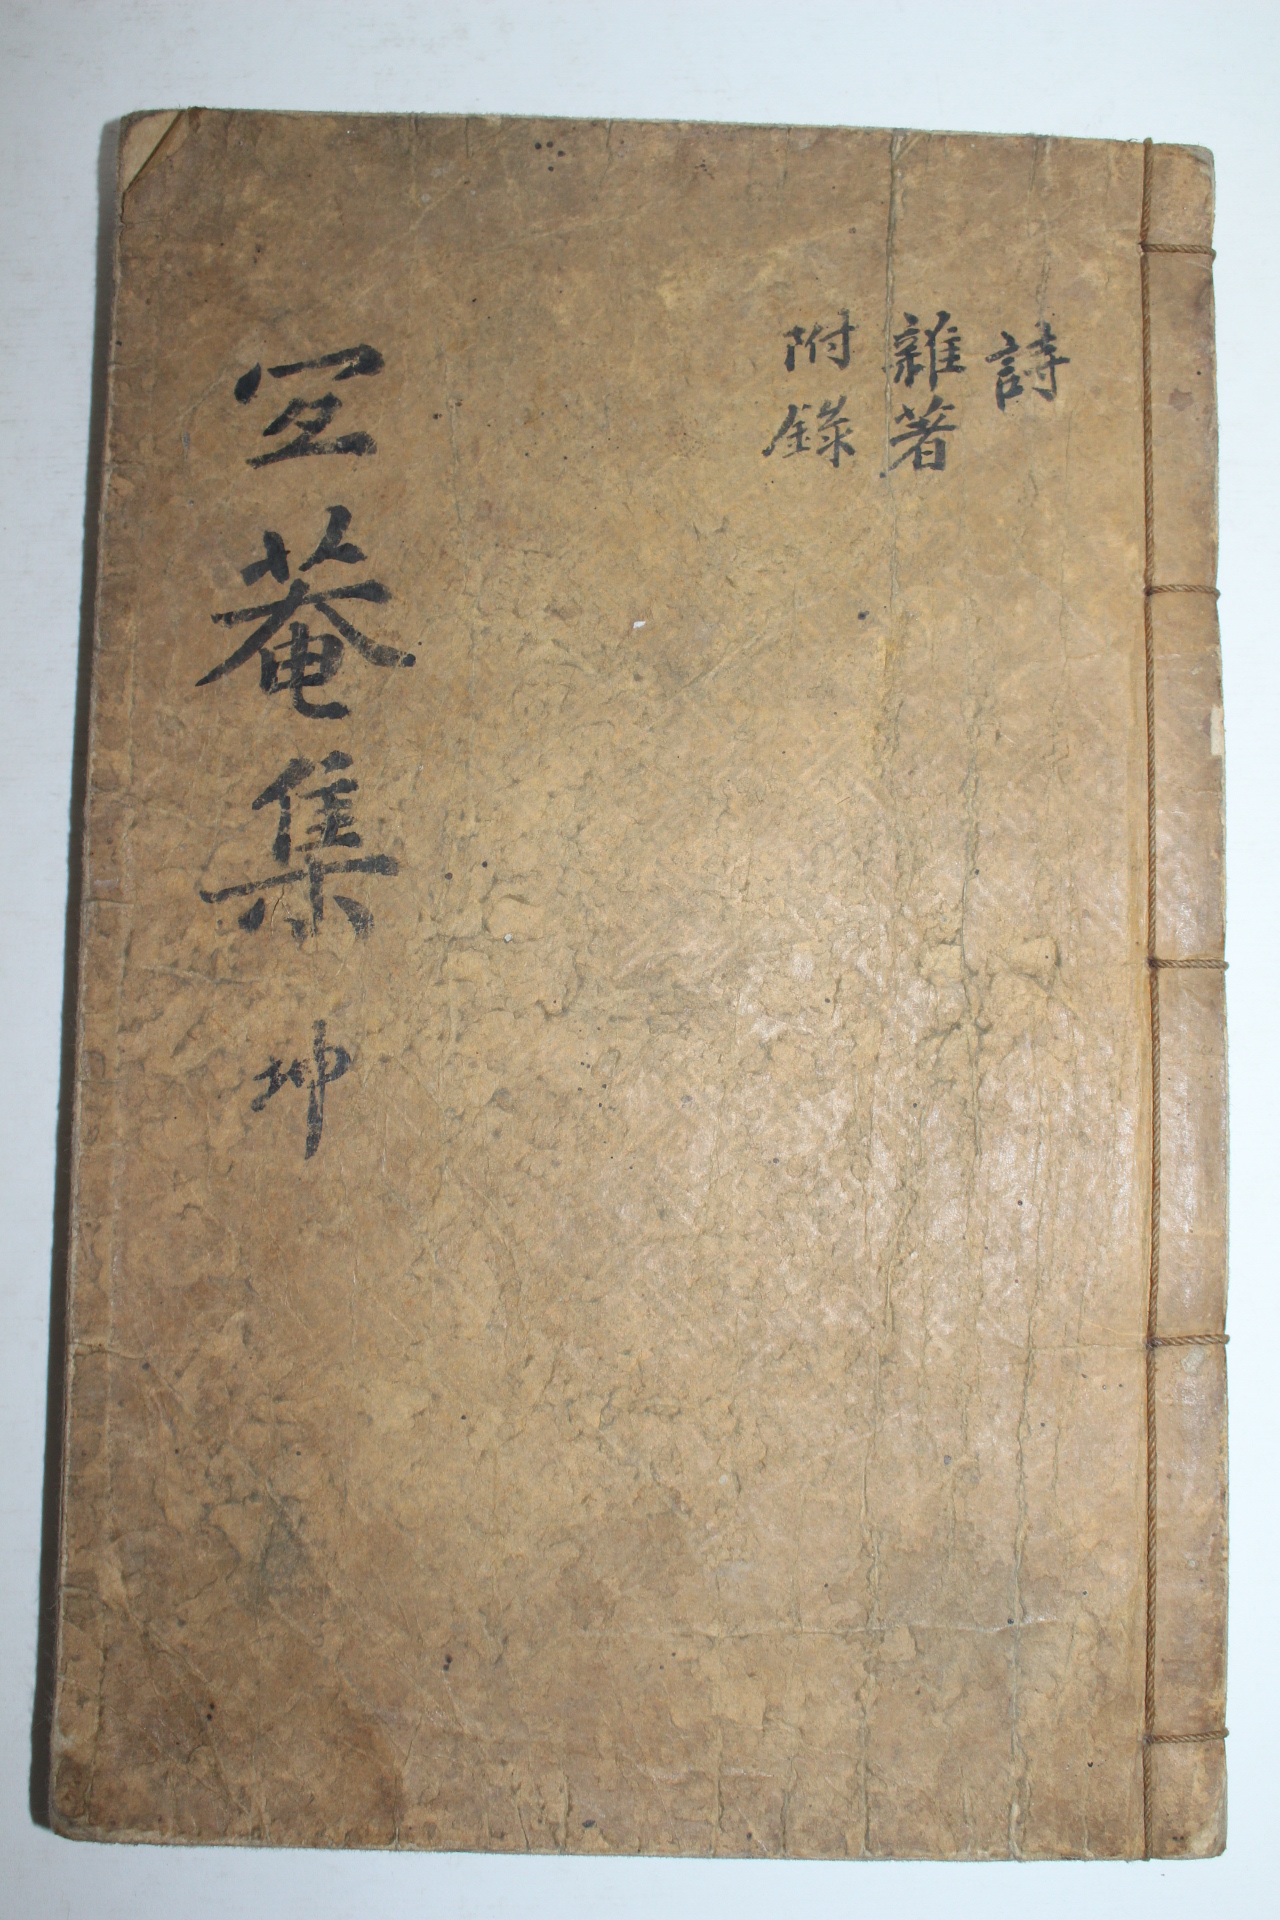 詩
雜著
附錄
宜菴集 坤